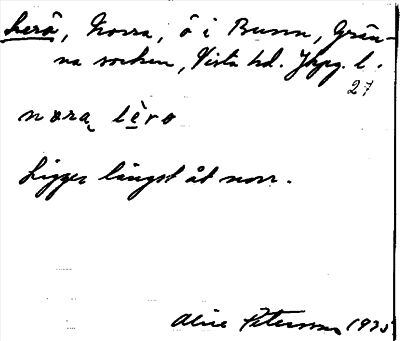 Lerö, Norra, ö i Bunn, Grän-
na socken, Vista hd. Jkpg. l.
27
nɷra lèro
Ligger längst åt norr.
Alice Petersson 1935